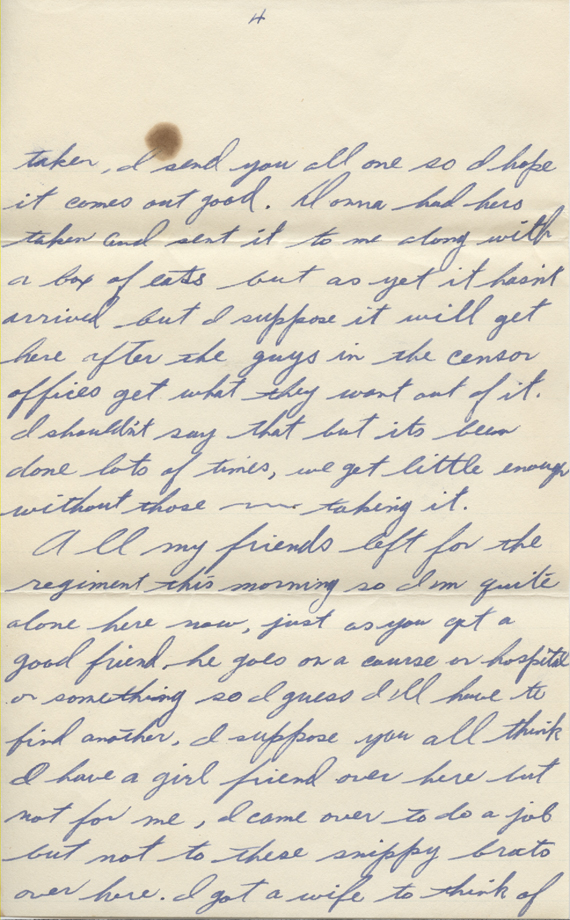 4
taken, I send you all one so I hope
it comes out good. Donna had hers
taken and sent it to me along with
a box of eats but as yet it hasn't
arrived but I suppose it will get
here after the guys in the censor
offices get what they want out of it.
I shouldn't say that but its been
done lots of times, we get little enough
without those ~~~ taking it.
All my friends left for the
regiment this morning so I'm quite
alone here now, just as you get a
good friend he goes on a course or hospital
or something so I guess I'll have to
find another. I suppose you all think
I have a girl friend over here but
not for me, I came over to do a job
but not to these snippy brats
over here. I got a wife to think of